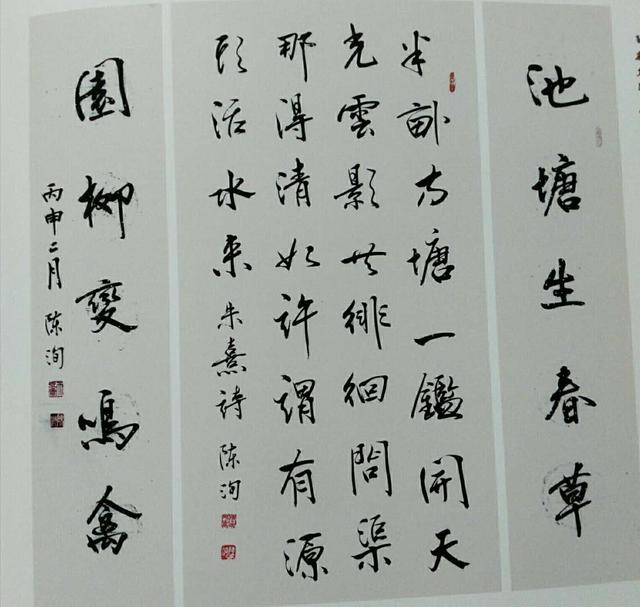 池塘生春草
半畝方塘一鑑開天
光雲影共徘徊問渠
那得清如許謂有源
頭活水来 朱熹詩 陈洵
園柳變鳴禽
丙申二月 陈洵